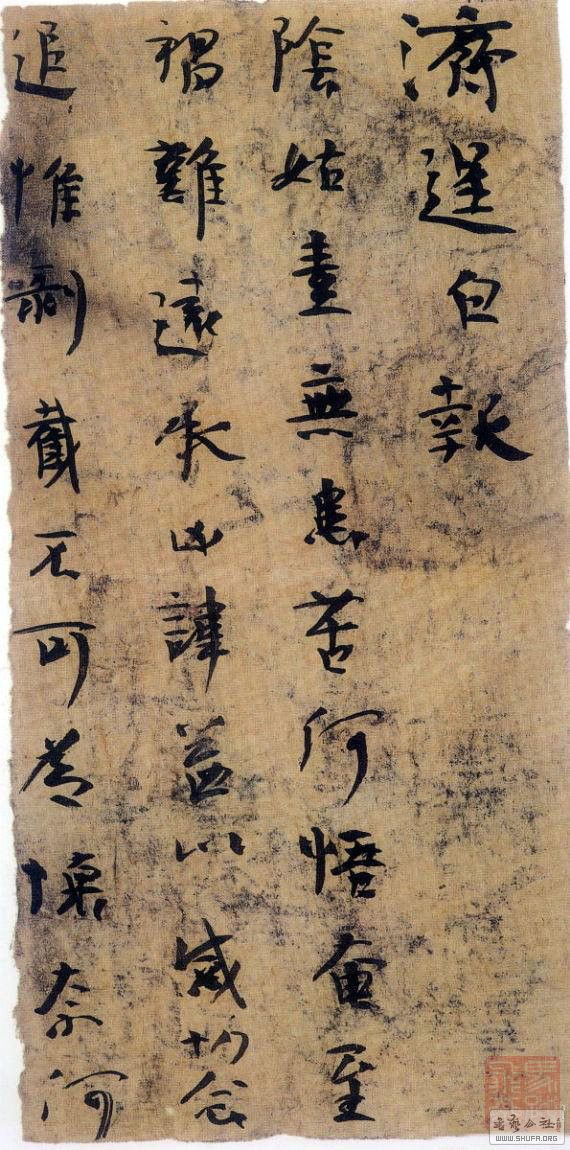 濟逞白報
陰姑素無患苦何悟奄至
禍難遠承凶諱益以感切念
追惟剝截不可為懷奈何
书艺公社
WWW.SHUFA.ORG